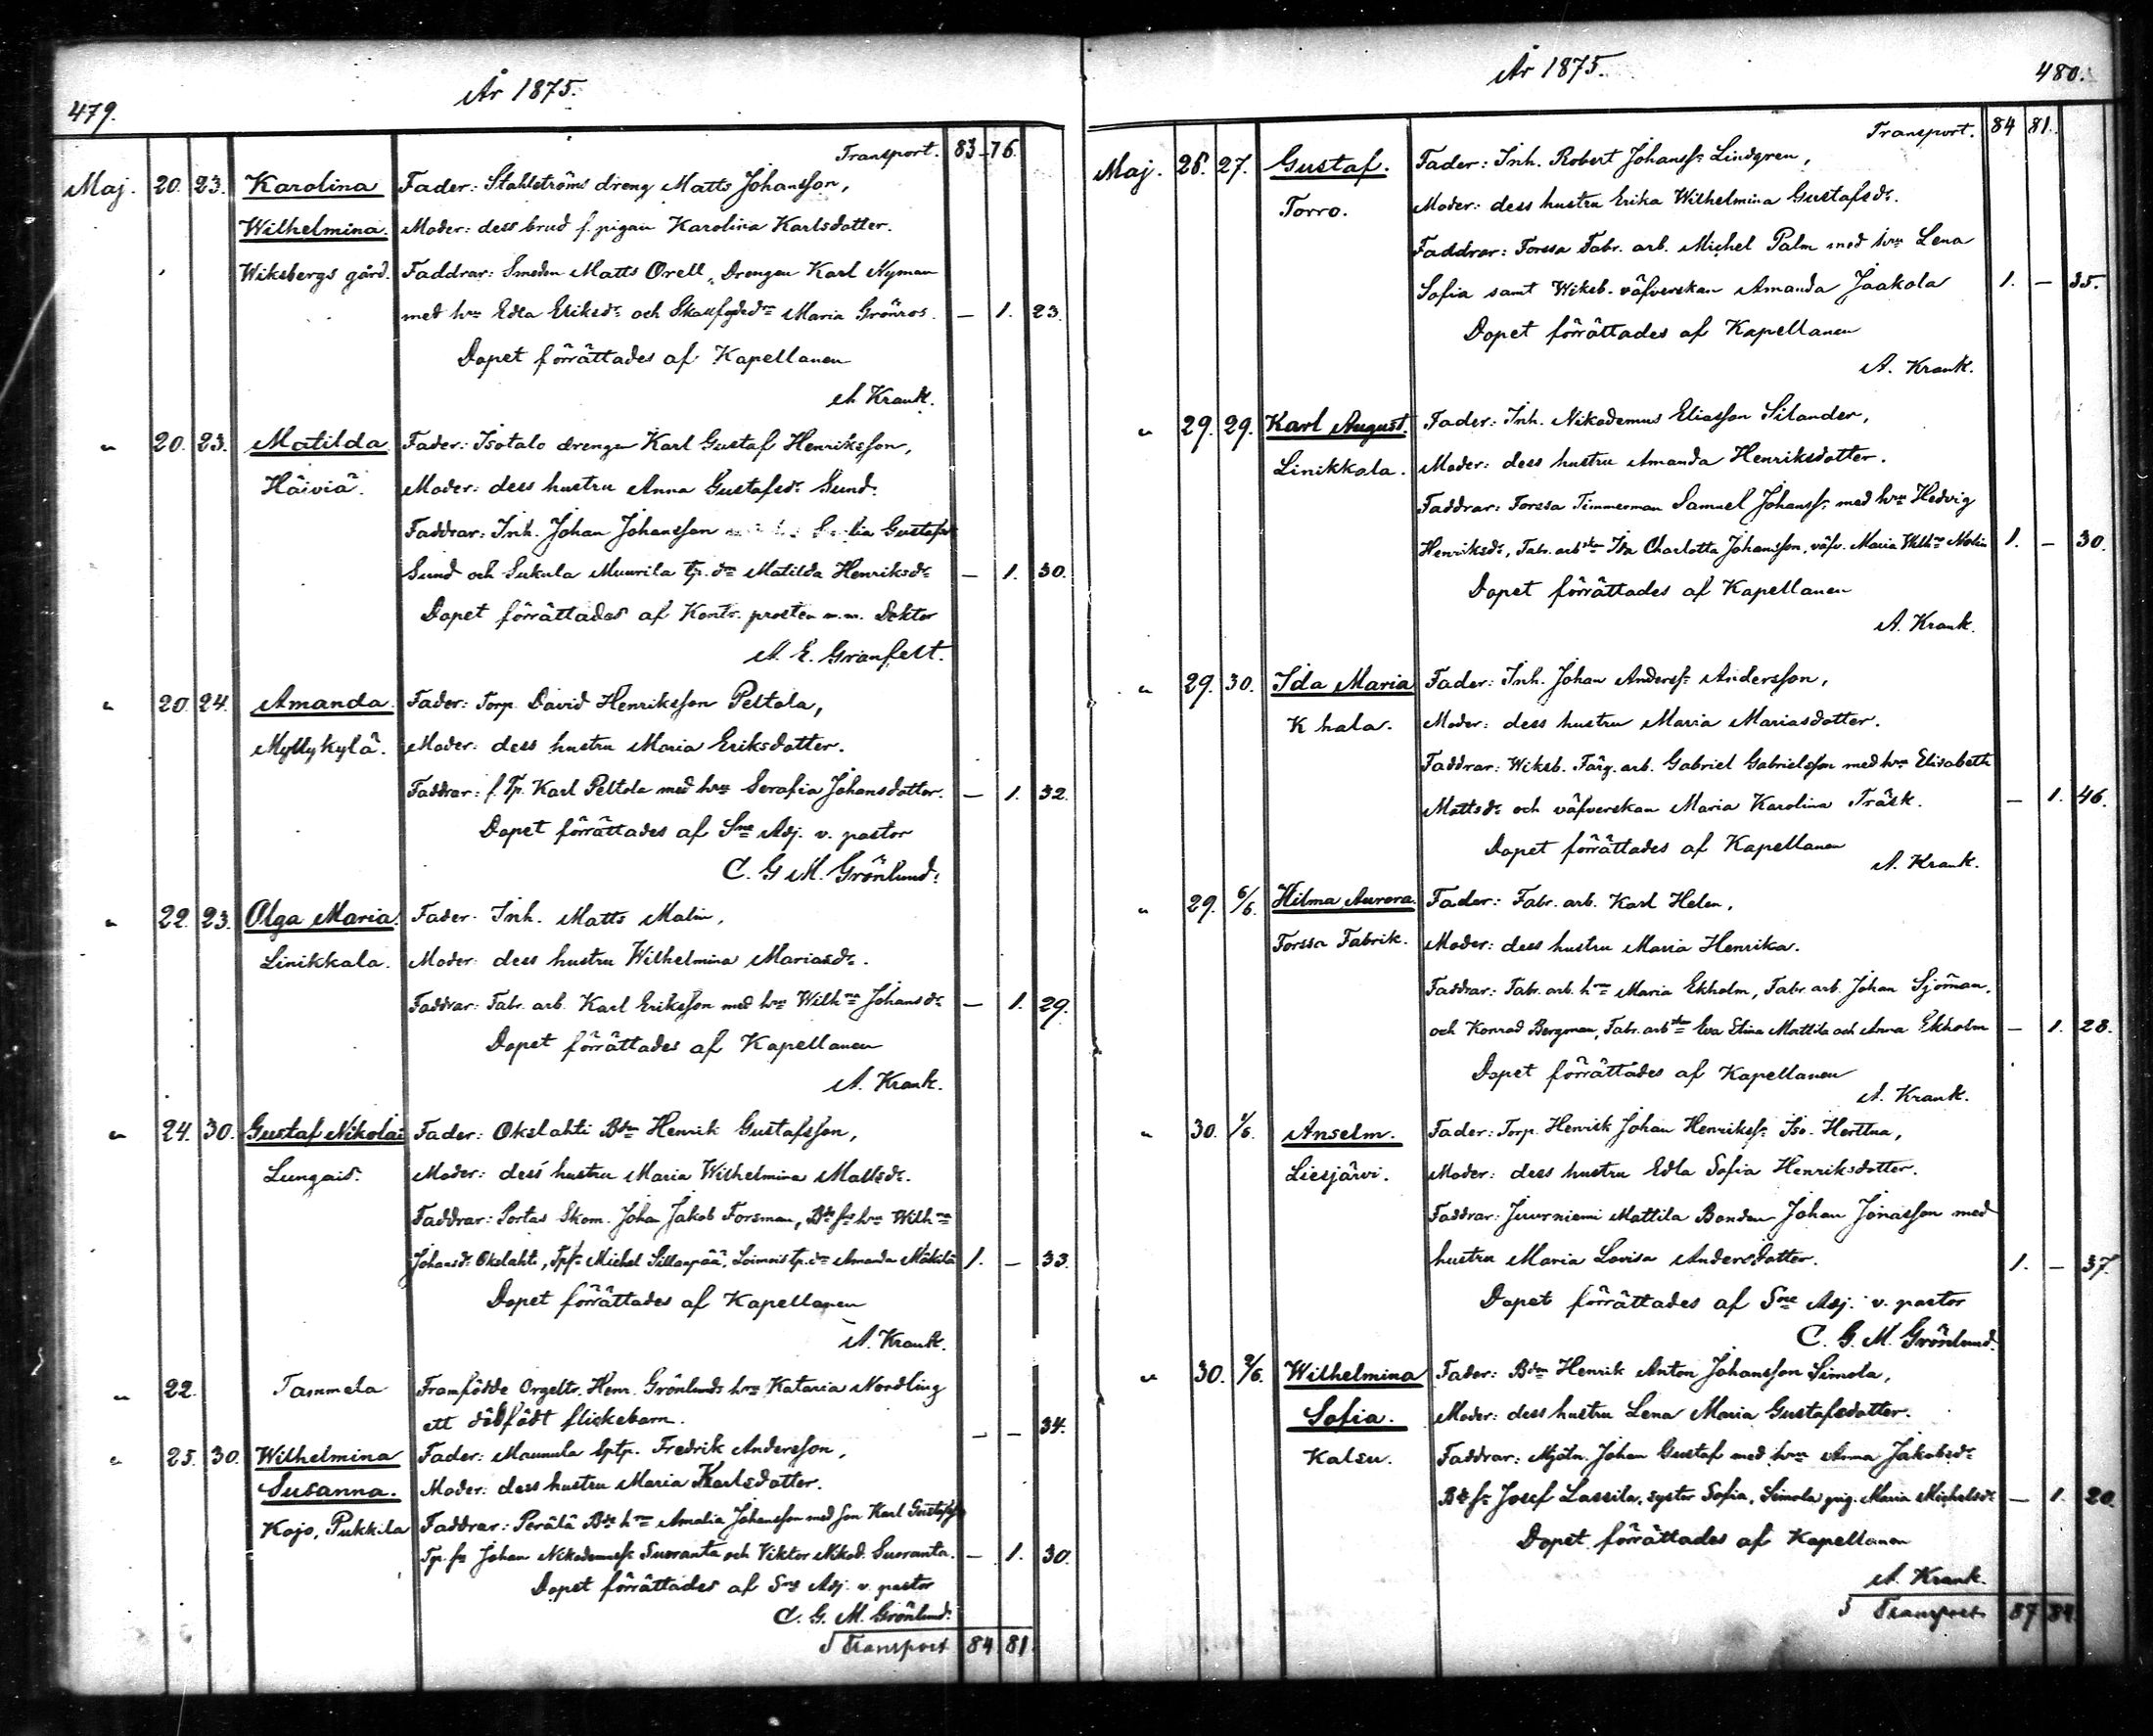 479.
År 1875.
Transport. 83 76.
Maj. 20. 23. Karolina Fader: Stahlströms dreng Matts Johansson,
Wilhelmina. Moder: dess brud f. pigan Karolina Karlsdotter.
Wiksbergs gård. Faddrar: Smeden Matts Orell, Drengen Karl Nyman
med hru Edla Eriksdr och Maria Grönroos. — 1. 23.
Dopet förrättades af Kapellanen
A. Krank.
" 20. 23. Matilda Fader: Isotalo drengen Karl Gustaf Henriksson,
Häiviä. Moder: dess hustru Anna Gustafsdr Sund.
Faddrar: Inh. Johan Johansson Gustafsdr
Sund och Sukula Muurila tp. dr Matilda Henriksdr — 1. 30.
Dopet förrättades af Kontr. prosten m.m. Doktor
A. E. Granfelt.
" 20. 24. Amanda. Fader: Torp. David Henriksson Peltola,
Myllykylä. Moder: dess hustru Maria Eriksdotter.
Faddrar: f. Tp. Karl Peltola med hru Serafia Johansdotter. — 1. 32.
Dopet förrättades af Sne Adj. v. pastor
C. G. M. Grönlund.
" 22. 23. Olga Maria. Fader: Inh. Matts Malin,
Linikkala. Moder: dess hustru Wilhelmina Mariasdr.
Faddrar: Fabr. arb. Karl Eriksson med hru Wilhna Johansdr — 1. 29.
Dopet förrättades af Kapellanen
A. Krank.
" 24. 30. Gustaf Nikolai Fader: Okslahti Bdn Henrik Gustafsson,
Lungais. Moder: dess hustru Maria Wilhelmina Mattsdr.
Faddrar: Portas Skom. Johan Jakob Forsman, Bde fs hru Wilhna
Johansdr Okslahti, Tpfs Michel Sillanpää, Loimois tp. dr Amanda Mäkilä 1. — 33.
Dopet förrättades af Kapellanen
A. Krank.
" 22. Tammela Framfödde Orgeltr. Henr. Grönlunds hru Kataria Nordling
ett dödfödt flickebarn. — — 34.
" 25. 30. Wilhelmina Fader: Maunula Fredrik Andersson,
Susanna. Moder: dess hustru Maria Karlsdotter.
Kojo, Pukkila Faddrar: Perälä Bde hru Amalia Johansson med son Karl Gustafsson
Tp. fs Johan Nikodemuss. Suoranta och Viktor Nikod. Suoranta. — 1. 30.
Dopet förrättades af Sne Adj. v. pastor
C. G. M. Grönlund.
Transport 84 81.
År 1875.
480.
Transport. 84 81.
Maj. 26. 27. Gustaf. Fader: Inh. Robert Johanss. Lindgren,
Torro. Moder: dess hustru Erika Wilhelmina Gustafsdr.
Faddrar: Forssa Fabr. arb. Michel Palm med hru Lena
Sofia samt Wiksb. väfverskan Amanda Jaakola 1. — 35.
Dopet förrättades af Kapellanen
A. Krank.
" 29. 29. Karl August. Fader: Inh. Nikodemus Eliasson Silander,
Linikkala. Moder: dess hustru Amanda Henriksdotter.
Faddrar: Forssa Timmerman Samuel Johanss. med hru Hedvig
Henriksdr, Fabr. arbskan Ida Charlotta Johansson, väfv. Maria Wilhna Malin 1. — 30.
Dopet förrättades af Kapellanen
A. Krank.
" 29. 30. Ida Maria Fader: Inh. Johan Anderss. Andersson,
K hala. Moder: dess hustru Maria Mariasdotter.
Faddrar: Wiksb. Färg. arb. Gabriel Gabrielsson med hru Elisabeth
Mattsdr och väfverskan Maria Karolina Träsk. — 1. 46.
Dopet förrättades af Kapellanen
A. Krank.
" 29. 6/6. Hilma Aurora. Fader: Fabr. arb. Karl Helen,
Forssa Fabrik. Moder: dess hustru Maria Henrika.
Faddrar: Fabr. arb. hru Maria Ekholm, Fabr. arb. Johan Sjöman,
och Konrad Bergman, Fabr. arbskan Eva Stina Mattila och Anna Ekholm — 1. 28.
Dopet förrättades af Kapellanen
A. Krank.
" 30. 1/6. Anselm. Fader: Torp. Henrik Johan Henrikss. Iso-Herttua,
Liesjärvi. Moder: dess hustru Edla Sofia Henriksdotter.
Faddrar: Juurniemi Mattila Bonden Johan Jonasson med
hustru Maria Lovisa Andersdotter. 1. — 37.
Dopet förrättades af Sne Adj. v. pastor
C. G. M. Grönlund.
" 30. 9/6. Wilhelmina Fader: Bdn Henrik Anton Johansson Simola,
Sofia. Moder: dess hustru Lena Maria Gustafsdotter.
Kalsu. Faddrar: Mjöln. Johan Gustaf med hru Anna Jakobsdr
Bde fs Josef Lassila, syster Sofia, Simola pig. Maria Michelsdr — 1. 20.
Dopet förrättades af Kapellanen
A. Krank.
Transport 87 84.